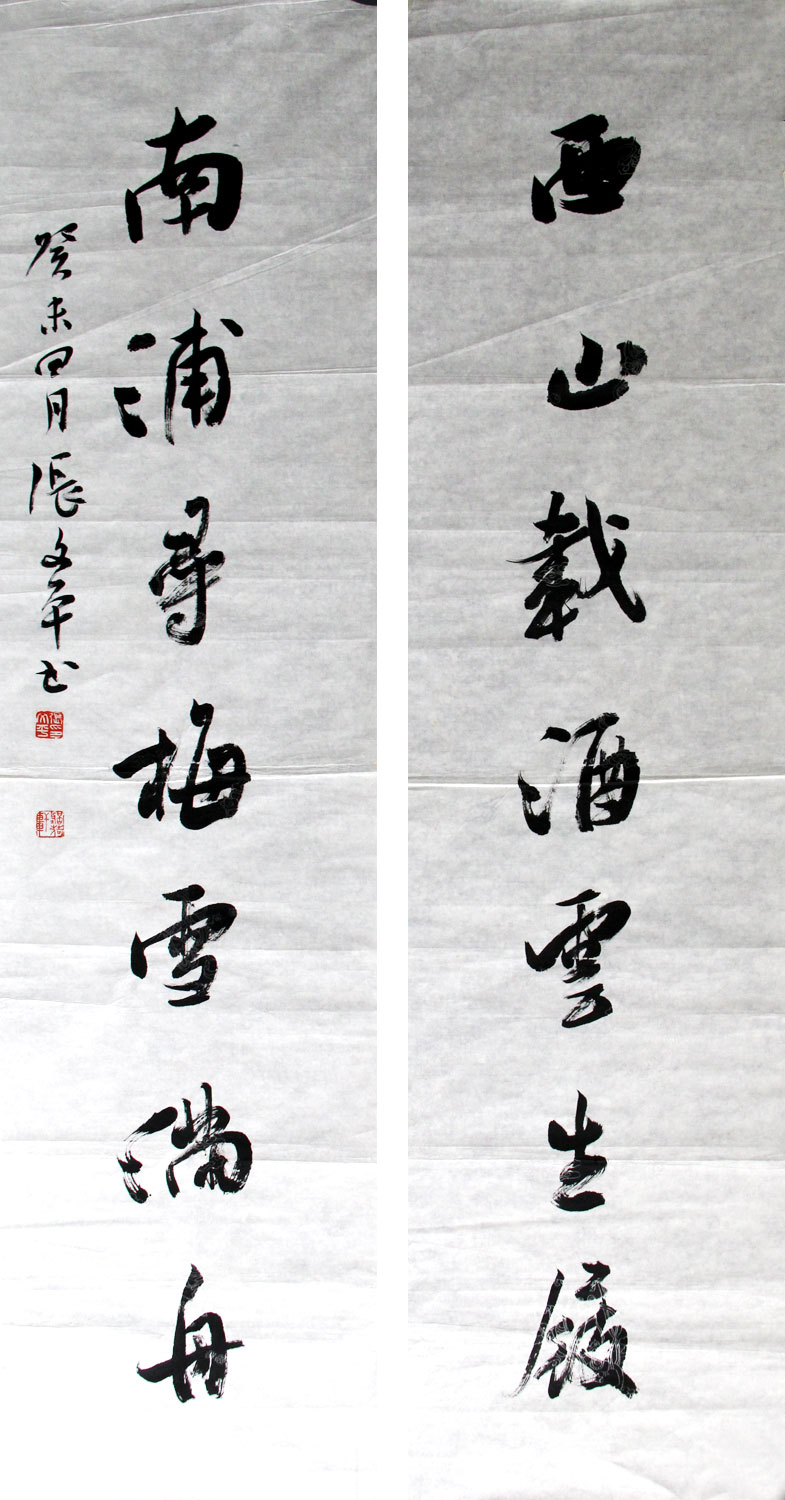 西山載酒雲生屐
南浦尋梅雪滿舟
癸未四月張文平书